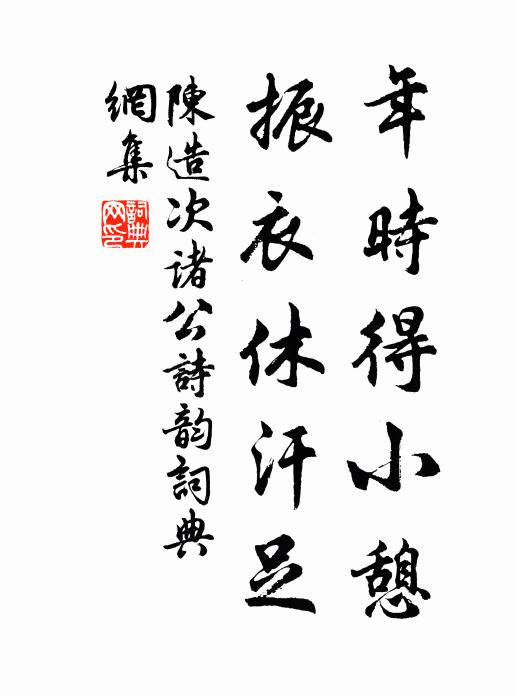 年時得小憩
振衣休汗足
陳造次諸公詩韵詞典
網集
詞典
网印